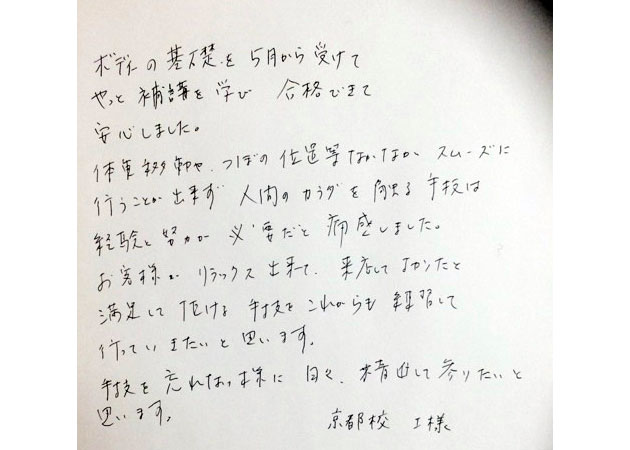 ボディーの基礎を5月から受けて
やっと補講を学び 合格できて
安心しました。
体重移動や、つぼの位置等なかなか スムーズに
行うことが出来ず 人間のカラダを触る手技は
経験と努力が必要だと痛感しました。
お客様が リラックス出来て、来店してよかったと
満足して頂ける 手技をこれからも練習して
行っていきたいと思います。
手技を忘れない様に 日々、精進して参りたいと
思います。
京都校 I様